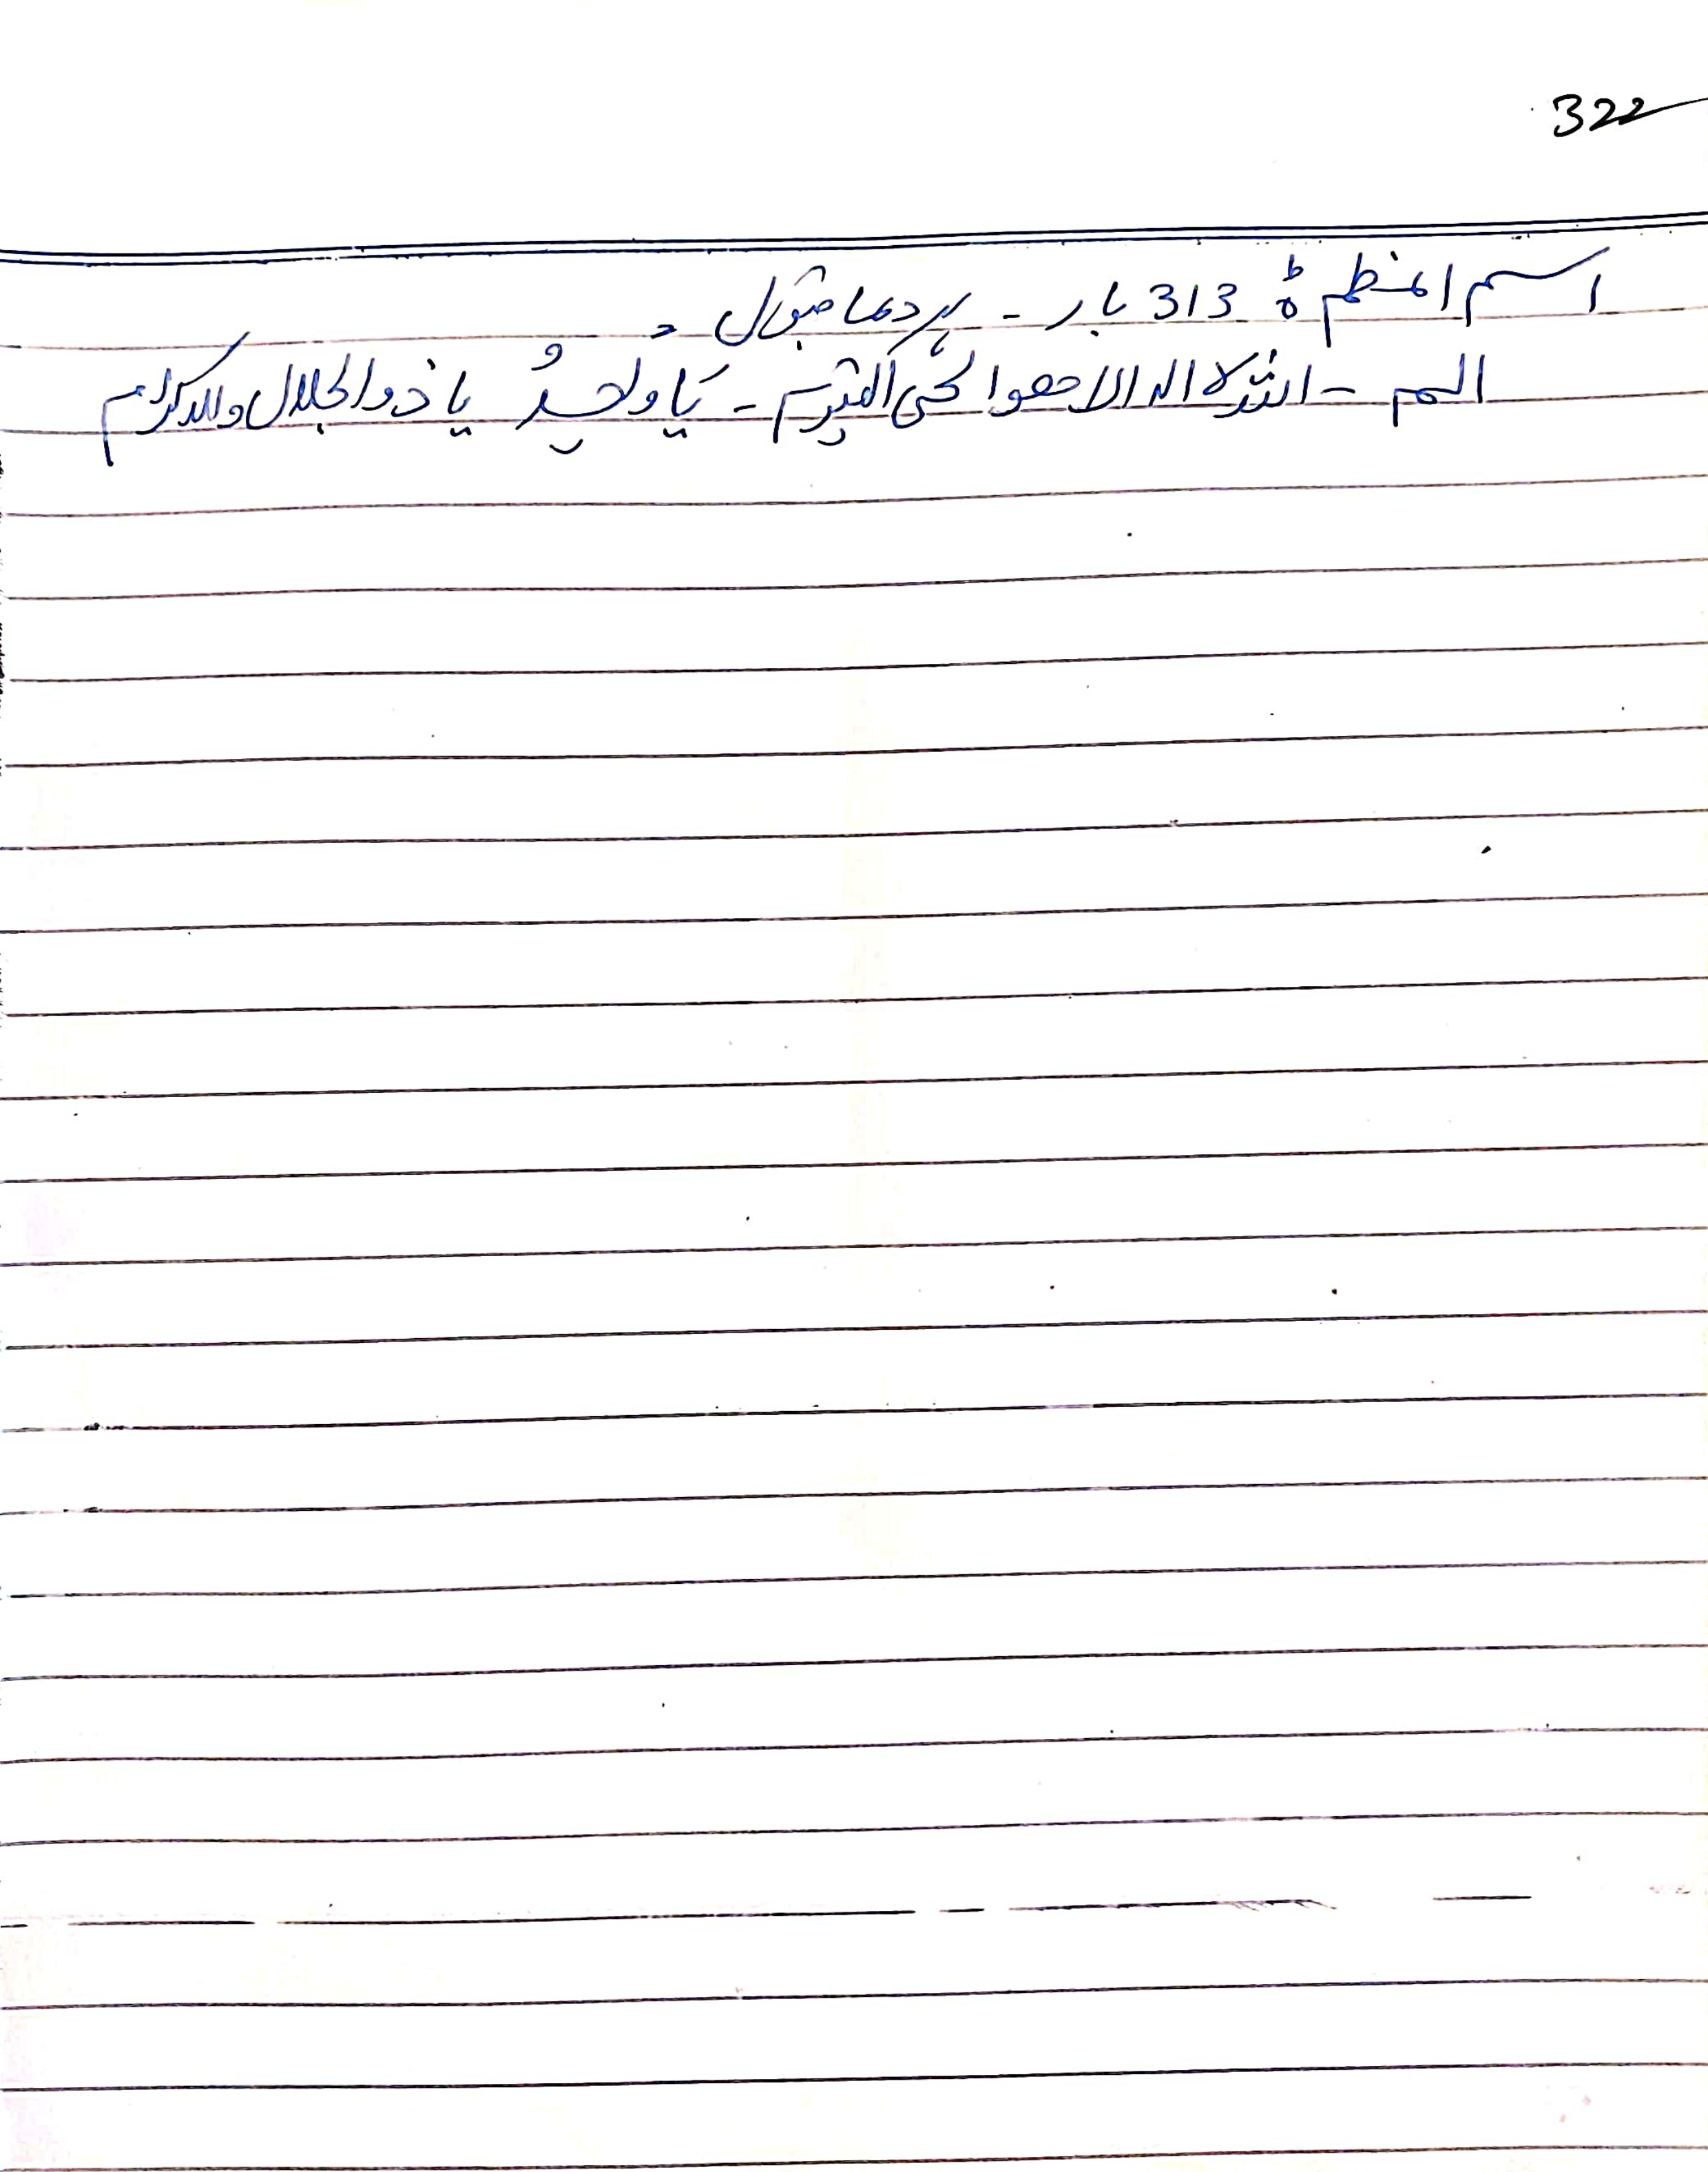 322
اسم اعظم 313 بار - ہر دعا قبول -
الم - اللہ لا الہ الا ھوا لحی القیوم - یَا وَحِیدُ یا ذوالجلال والاکرام